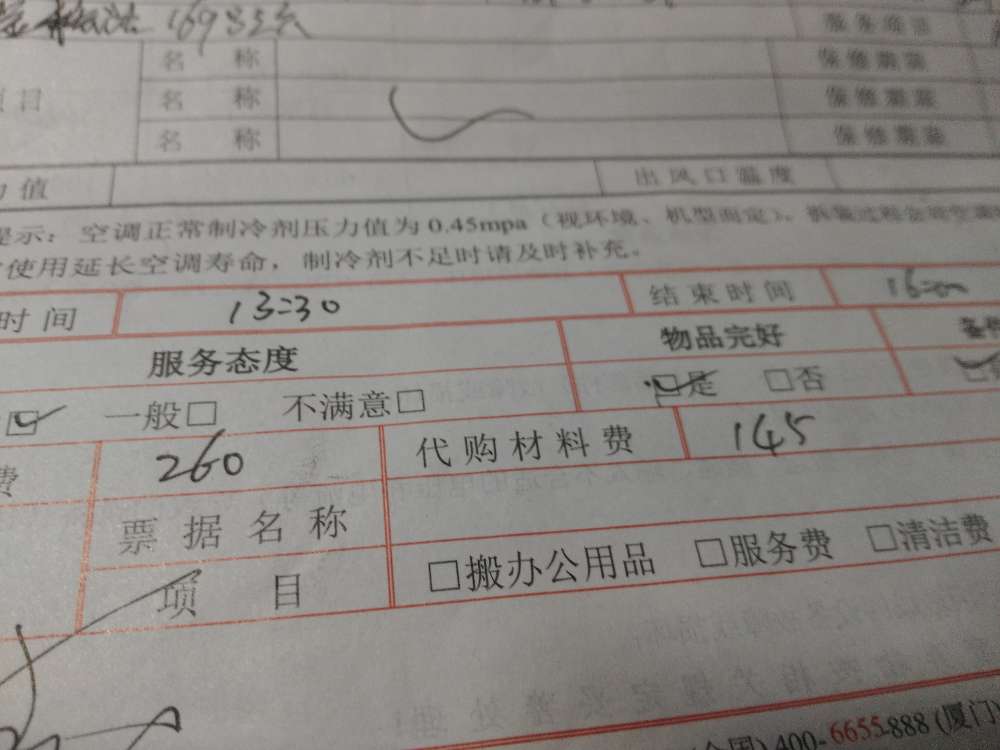 名 称 保修期至
目 名 称 保修期至
名 称 保修期至
力值 出风口温度
提示：空调正常制冷剂压力值为0.45mpa（视环境、机型而定）。
使用延长空调寿命，制冷剂不足时请及时补充。
时间 13:30 结束时间 16:00
服务态度 物品完好
一般□ 不满意□ □是 □否
费 260 代购材料费 145
票据名称
项 目 □搬办公用品 □服务费 □清洁费
400-6655-888 (厦门)